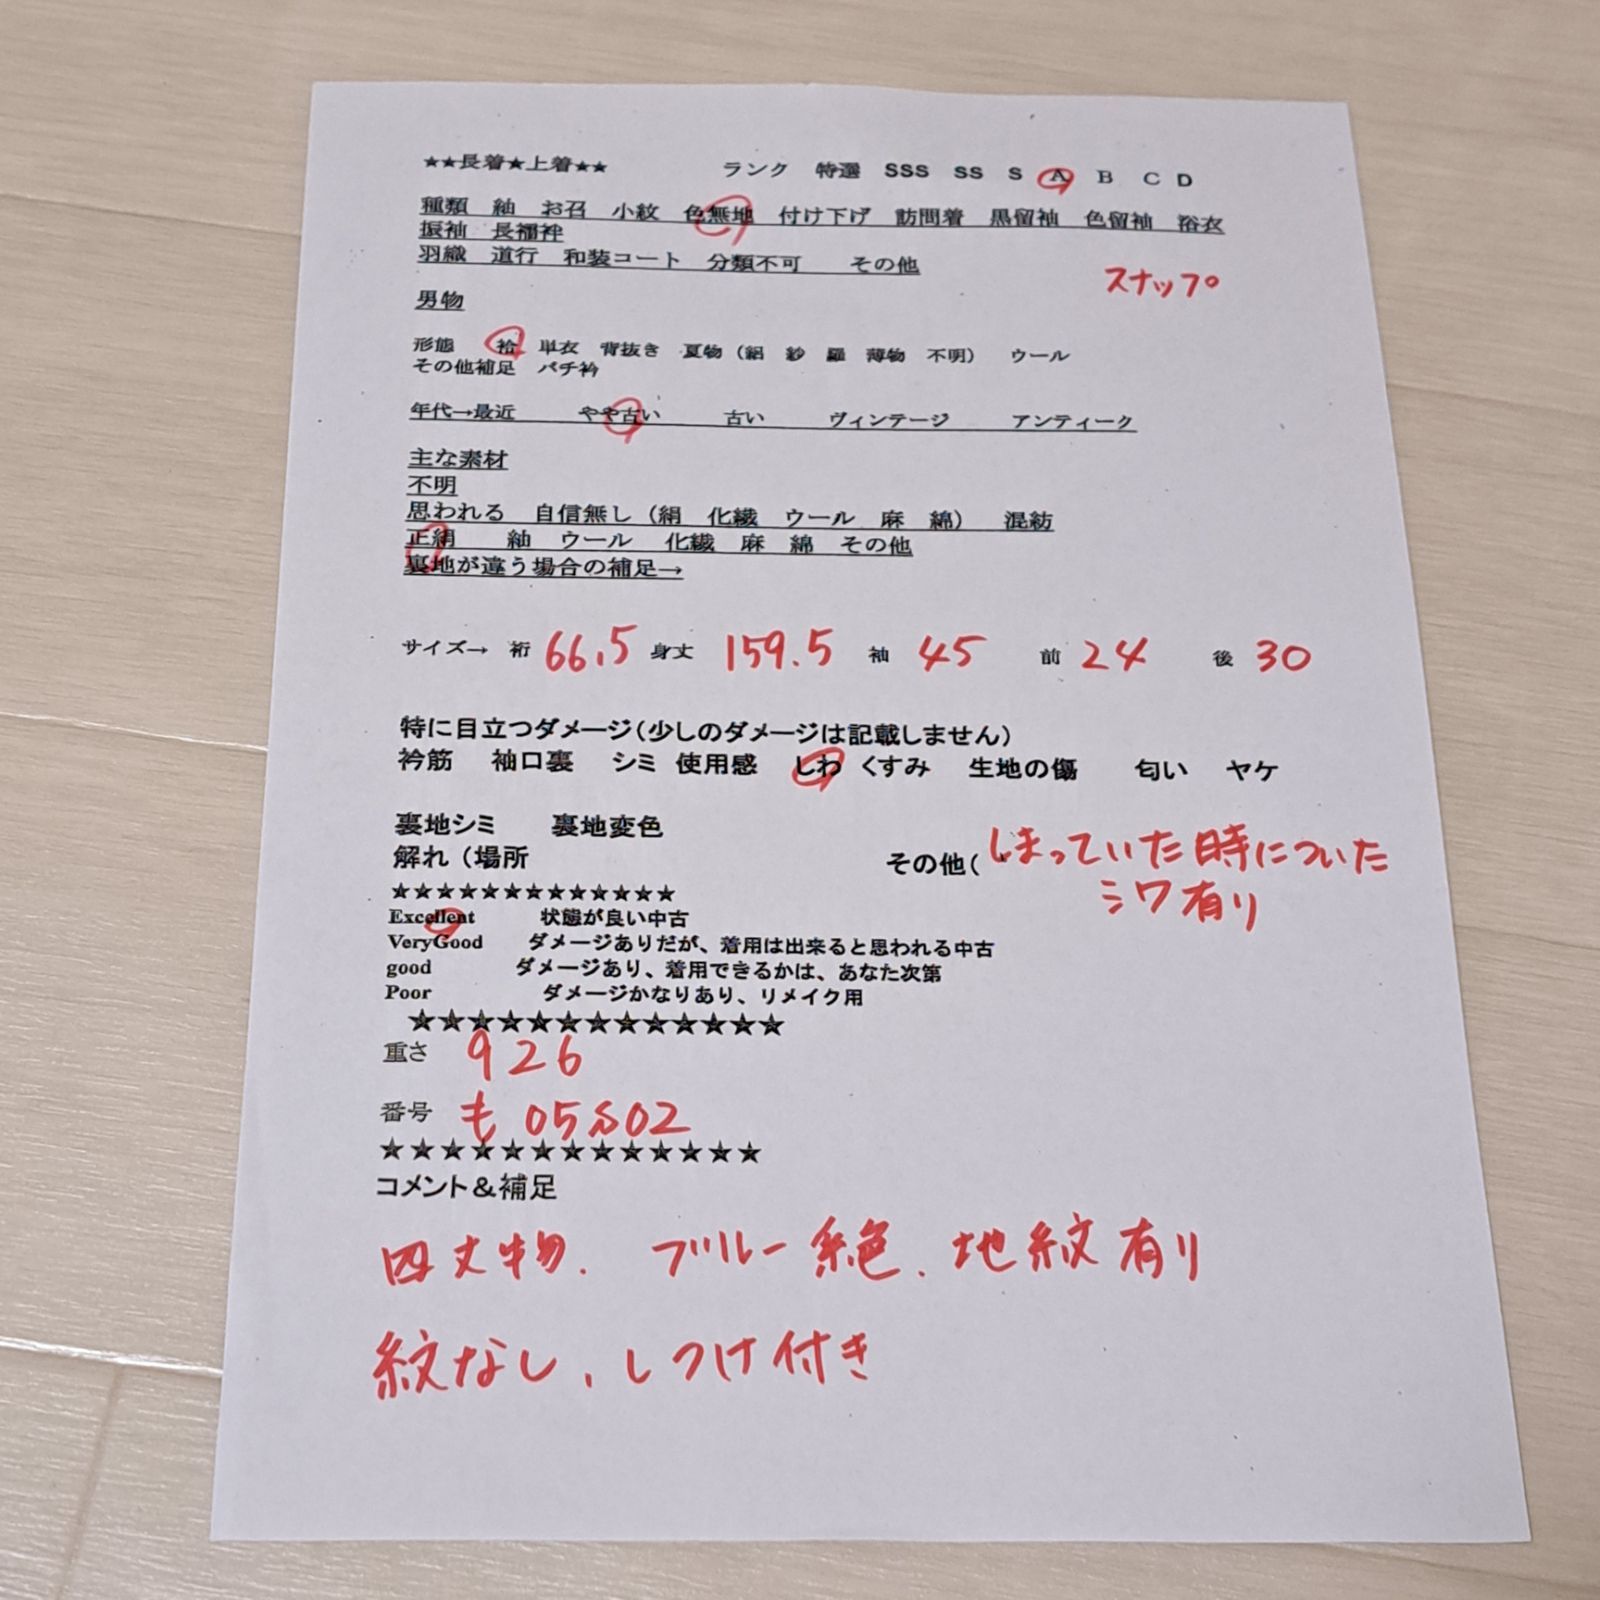 ★★長着★上着★★　ランク　特選　SSS　SS　S　A　B　C　D
種類　紬　お召　小紋　色無地　付け下げ　訪問着　黒留袖　色留袖　浴衣
振袖　長襦袢
羽織　道行　和装コート　分類不可　その他
スナップ
男物
形態　袷　単衣　背抜き　夏物（絽　紗　羅　薄物　不明）　ウール
その他補足　バチ衿
年代→最近　やや古い　古い　ヴィンテージ　アンティーク
主な素材
不明
思われる　自信無し（絹　化繊　ウール　麻　綿）　混紡
正絹　紬　ウール　化繊　麻　綿　その他
裏地が違う場合の補足→
サイズ→　裄　66.5　身丈　159.5　袖　45　前　24　後　30
特に目立つダメージ（少しのダメージは記載しません）
衿筋　袖口裏　シミ　使用感　しわ　くすみ　生地の傷　匂い　ヤケ
裏地シミ　裏地変色
解れ（場所　その他（しまっていた時についた
シワ有り
★★★★★★★★★★★★★
Excellent　状態が良い中古
VeryGood　ダメージありだが、着用は出来ると思われる中古
good　ダメージあり、着用できるかは、あなた次第
Poor　ダメージかなりあり、リメイク用
★★★★★★★★★★★★★
重さ　926
番号　も
★★★★★★★★★★★★★
コメント＆補足
四丈物.　ブルー系色.　地紋有り
紋なし、しつけ付き